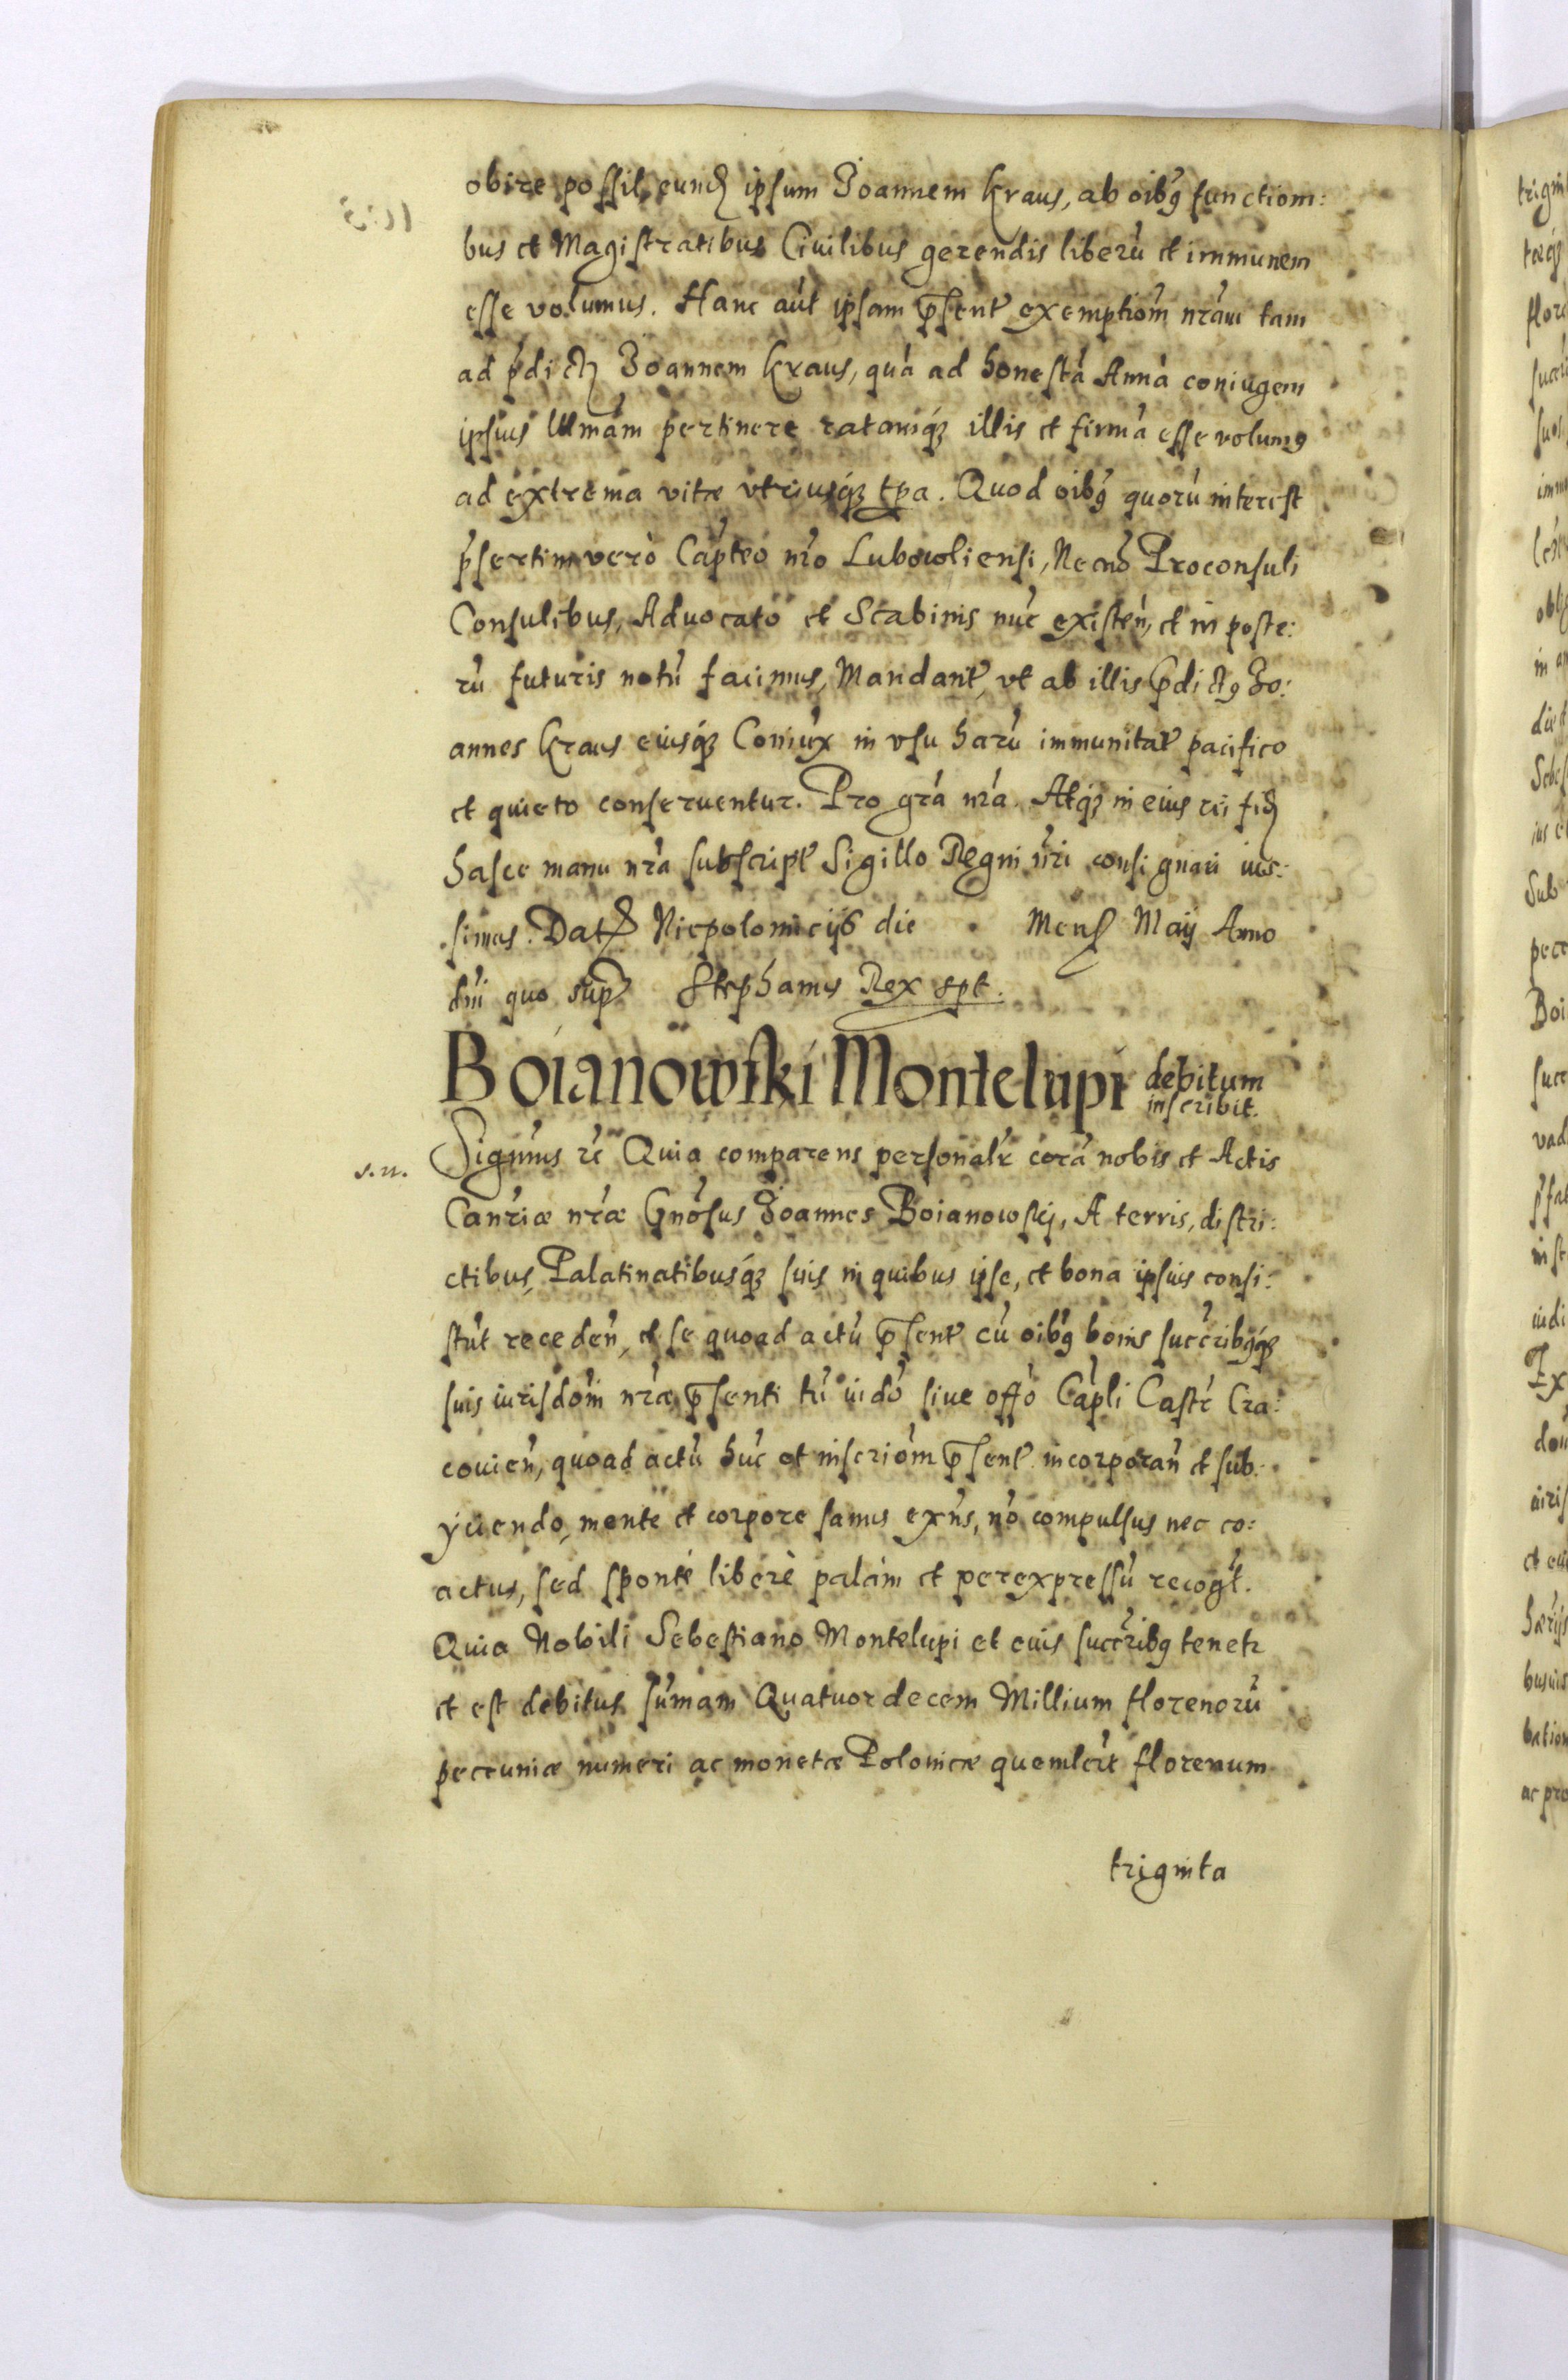 obire possit, eund ipsum Joannem Kraus, ab oibg functioni:
bus et Magistratibus Ciuilibus gerendis liberũ et immunem
esse volumus. Hanc aũt ipsam p̃sent exemptiõm nr̃am tam
ad p̃dict Joannem Kraus, quã ad honestã Annã coniugem
ipsius pertinere ratamq́ illis et firmã esse volumg
ad extrema vitæ vtriusq́ tpa. Quod oibg quorũ interest
p̃sertim verò Cap̃teo nr̃o Lubowliensi, Necnõ Proconsuli
Consulibus, Aduocato et Scabinis nũc existeñ, et in poste:
rũ futuris notũ facimus, Mandant, vt ab illis p̃dictg Jo:
annes Kraus eiusq́ Coniũx in vsu harũ immunitat pacifico
et quieto conseruentur. Pro gr̃a nr̃a. Atq́ in eius rei fid
hasce manu nr̃a subscript Sigillo Regni nr̃i consignari ius:
simus. Dat Niepolomicijs die Mens Maij Anno
dñi quo sup Stephanus Rex spt.
Boianowski Montelupi debitum
inscribit.
s. n. Signũus rc Quia comparens personalr̃ corã nobis et Actis
Canr̃iæ nr̃æ Gnõsus Joannes Boianowskj, A terris, distri:
ctibus, Palatinatibusq́ suis in quibus ipse, et bona ipsius consi:
stũt recedeñ, et se quoad actũ p̃sent cũ oibg bonis succr̃ibgq́
suis iurisdõm nr̃æ p̃senti tũ iudõ siue offõ Cap̃li Castr̃ Cra:
couieñ, quoad actũ hũc et inscriõm p̃sent incorporañ et sub:
ijciendo, mente et corpore sanus exñs, nõ compulsus nec co:
actus, sed sponte liberè palàm et per expressũ recogt.
Quia Nobili Sebestiano Montelupi et euis succr̃ibg tenetr
et est debitus sũmam Quatuordecem Millium florenorũ
pecuniæ numeri ac monetæ Polonicæ quemlr̃t florenum
triginta